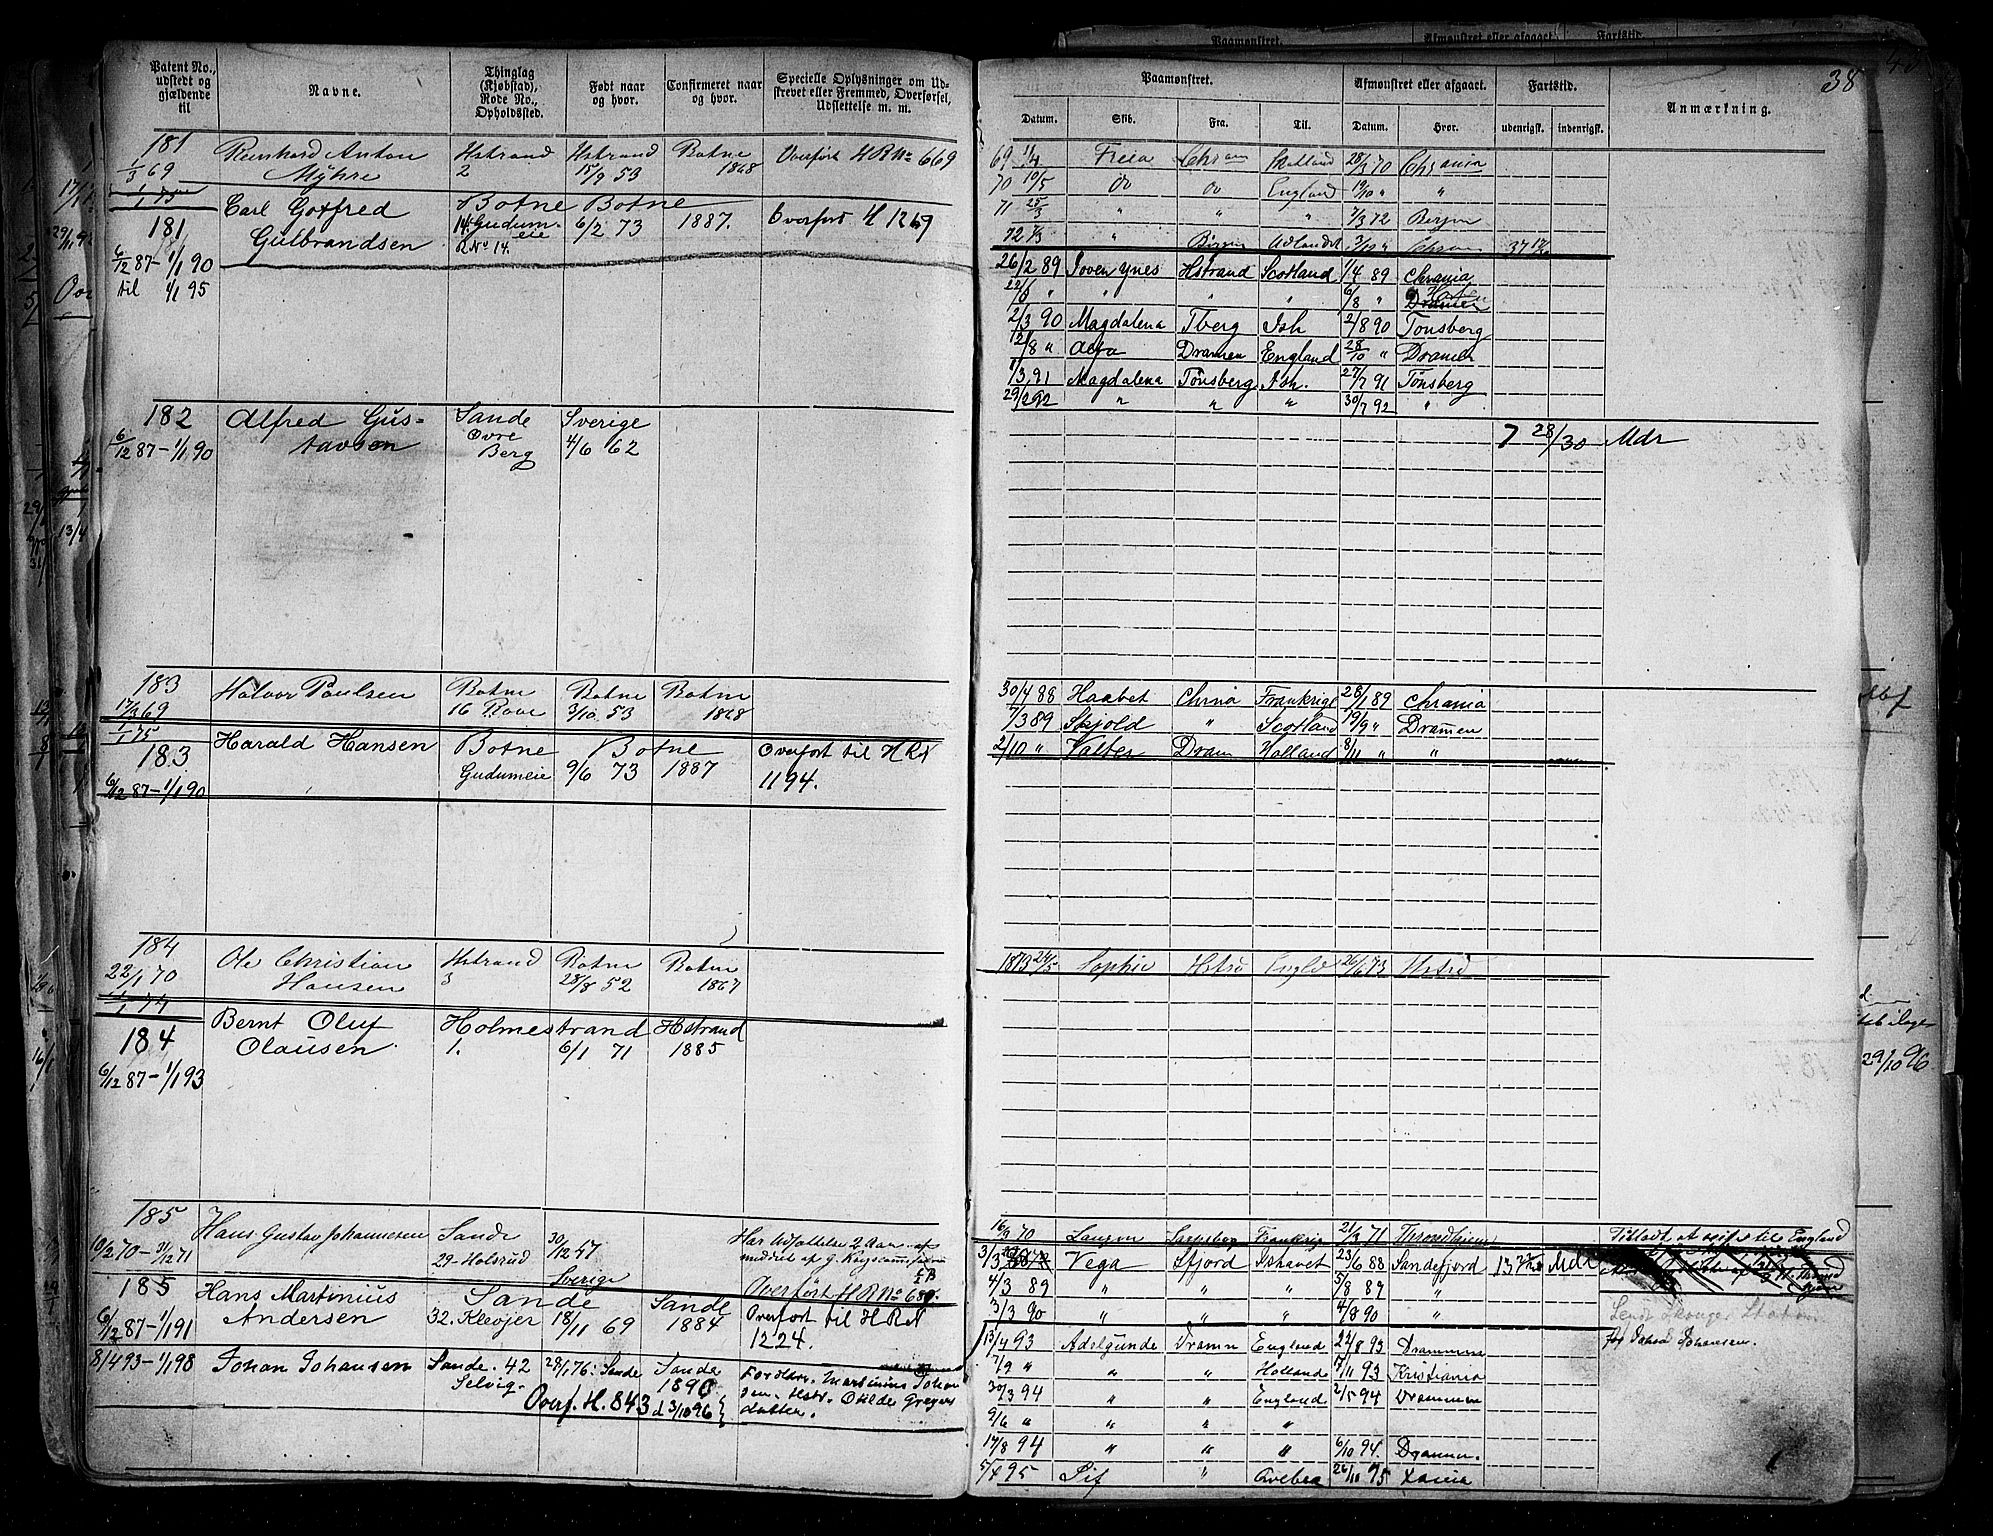 Patent No., udstedt og gjældende til
Navne.
Thinglag (Kjøbstad), Rode No., Opholdssted.
Født naar og hvor.
Confirmeret naar og hvor.
Specielle Oplysninger om Udskrevet eller Fremmed, Overførsel, Udslettelse m. m.
181 Reinhard Anton Hstrand Hstrand Botne Overført H R No 669
1/3 69 Myhre 2 15/9 53 1868
1/1 75
Carl Gotfred Botne Botne
181 Gulbrandsen 14 Gudumeie 6/2 73 1887. Overført H 1269
R. No 14.
6/12 87-1/1 90
til 1/1 95
182 Alfred Gus- Sande Sverige
6/12 87-1/1 90 tavsen Øvre 4/6 62
Berg
183 Halvor Paulsen Botne Botne Botne
17/3 69 16 Rove 3/10 53 1868
1/1 75
183 Harald Hansen Botne Botne Overført til H R N
Gudumeie 9/6 73 1887 1194.
6/12 87-1/1 90
184 Ole Christian Hstrand Botne Botne
22/1 70 Hansen 3 28/8 52 1867
1/1 74
184 Bernt Oluf Holmestrand Hstrand
Olausen 1. 6/1 71 1885
6/12 87-1/1 93
185 Hans Gustav Johannesen Sande 30/12 47
10/2 70-31/12 71 29-Holsrud Sverige
Overført H R No 680.
185 Hans Martinius Sande Sande Overført til H R N
6/12 87-1/1 91 Andersen 32. Klevjer 18/11 69 1884 1224.
8/4 93-1/1 98 Johan Johansen Sande. 42 29/1 76: Sande Sande Forældre. Martinius Johan
Selvig. 1890 sen. Hstr. Otilde Gregers
Overf. H. 843 d 3/10 96 datter.
38
Paamønstret.
Afmønstret eller afgaaet.
Fartstid.
Anmærkning.
Datum. Skib. Fra. Til. Datum. Hvor. udenrigsk. indenrigsk.
69 11/4 Freia Chrania 28/3 70 Chrania
70 10/5 do do England 19/10 " "
71 25/3 " " " 7/3 72 Bergen
72 7/3 " Bergen Udlandet 3/12 " Chrania
26/2 89 Foven Ynes Hstrand Scotland 1/4 89 Chrania
22/6 " " " " 6/8 " Dramen
2/3 90 Magdalena Tberg Ish 2/8 90 Tønsberg
12/8 " Alfa Dramen England 28/10 " Dramen
1/3 91 Magdalena Tønsberg Ish. 27/7 91 Tønsberg
29/2 92 " " " 30/7 92 "
7 28/30 Mdr
30/4 88 Haabet Chrnia Frankrige 28/1 89 Chrania
7/3 89 Skjold " Scotland 19/9 " Dramen
2/10 " Valber Dram Holland 8/11 " "
1873 24/5 Sophie Hstrd Engld 26/6 73 Hstrd
16/9 70 Frankrig 21/3 71 Throndhjem Tilladt at reise til England
3/3 Vega Sfjord Ishavet 23/6 88 Sandefjord Mdr
4/3 89 " " " 5/8 89 "
3/3 90 " " " 4/8 90 "
13/4 93 Adelgunde Dramn England 22/8 93 Drammen
7/9 " " " Holland 17/11 93 Kristiania
30/3 94 " " England 2/5 94 Drammen
9/6 " " " "
17/8 94 " " " 6/10 94 Drammen.
5/4 95 Sif " 26/10 95
for Johan Johansen.
29/10 96